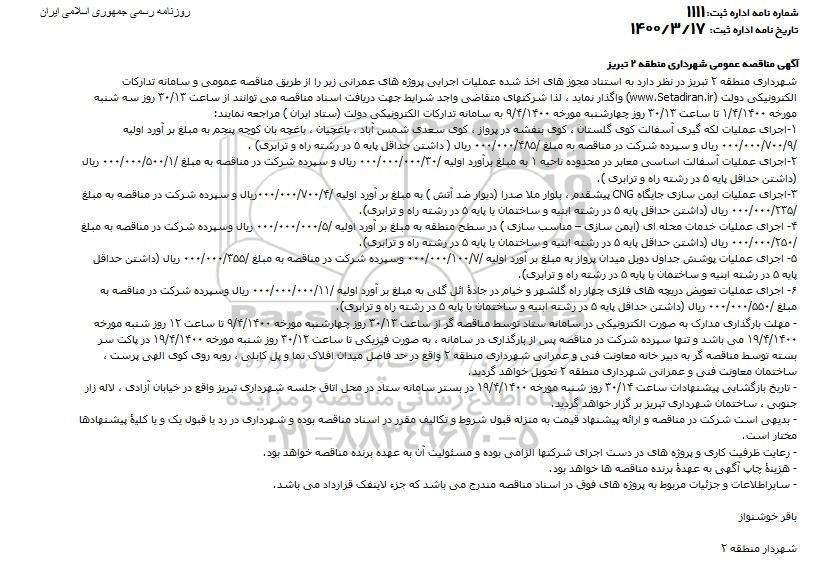 روزنامه رسمی جمهوری اسلامی ایران
شماره نامه اداره ثبت: ۱۱۱۱
تاریخ نامه اداره ثبت: ۱۴۰۰/۳/۱۷
آگهی مناقصه عمومی شهرداری منطقه ۲ تبریز
شهرداری منطقه ۲ تبریز در نظر دارد به استناد مجوز های اخذ شده عملیات اجرایی پروژه های عمرانی زیر را از طریق مناقصه عمومی و سامانه تدارکات
الکترونیکی دولت (www.Setadiran.ir) واگذار نماید ، لذا شرکتهای متقاضی واجد شرایط جهت دریافت اسناد مناقصه می توانند از ساعت ۳۰/۱۳ روز سه شنبه
مورخه ۱/۴/۱۴۰۰ تا ساعت ۳۰/۱۳ روز چهارشنبه مورخه ۹/۴/۱۴۰۰ به سامانه تدارکات الکترونیکی دولت (ستاد ایران ) مراجعه نمایند:
۱-اجرای عملیات لکه گیری آسفالت کوی گلستان ، کوی بنفشه در پرواز ، کوی سعدی شمس آباد ، باغچبان ، باغچه بان کوچه پنجم به مبلغ بر آورد اولیه
/۰۰۰/۰۰۰/۷۰۰/۹ ریال و سپرده شرکت در مناقصه به مبلغ /۰۰۰/۰۰۰/۴۸۵ ریال ( داشتن حداقل پایه ۵ در رشته راه و ترابری) .
۲-اجرای عملیات آسفالت اساسی معابر در محدوده ناحیه ۱ به مبلغ برآورد اولیه /۰۰۰/۰۰۰/۰۰۰/۳۰ ریال و سپرده شرکت در مناقصه به مبلغ /۰۰۰/۰۰۰/۵۰۰/۱ ریال
(داشتن حداقل پایه ۵ در رشته راه و ترابری ).
۳-اجرای عملیات ایمن سازی جایگاه CNG پیشقدم ، بلوار ملا صدرا (دیوار ضد آتش ) به مبلغ بر آورد اولیه /۰۰۰/۰۰۰/۷۰۰/۴ریال و سپرده شرکت در مناقصه به مبلغ
/۰۰۰/۰۰۰/۲۳۵ ریال (داشتن حداقل پایه ۵ در رشته ابنیه و ساختمان یا پایه ۵ در رشته راه و ترابری).
۴- اجرای عملیات خدمات محله ای (ایمن سازی – مناسب سازی ) در سطح منطقه به مبلغ بر آورد اولیه /۰۰۰/۰۰۰/۰۰۰/۵ ریال وسپرده شرکت در مناقصه به مبلغ
/۰۰۰/۰۰۰/۲۵۰ ریال (داشتن حداقل پایه ۵ در رشته ابنیه و ساختمان یا پایه ۵ در رشته راه و ترابری).
۵- اجرای عملیات پوشش جداول دوبل میدان پرواز به مبلغ بر آورد اولیه /۰۰۰/۰۰۰/۱۰۰/۷ وسپرده شرکت در مناقصه به مبلغ /۰۰۰/۰۰۰/۳۵۵ ریال (داشتن حداقل
پایه ۵ در رشته ابنیه و ساختمان یا پایه ۵ در رشته راه و ترابری).
۶- اجرای عملیات تعویض دریچه های فلزی چهار راه گلشهر و خیام در جادۀ ائل گلی به مبلغ بر آورد اولیه /۰۰۰/۰۰۰/۰۰۰/۱۱ ریال وسپرده شرکت در مناقصه به
مبلغ /۰۰۰/۰۰۰/۵۵۰ ریال (داشتن حداقل پایه ۵ در رشته ابنیه و ساختمان یا پایه ۵ در رشته راه و ترابری).
- مهلت بارگذاری مدارک به صورت الکترونیکی در سامانه ستاد توسط مناقصه گر از ساعت ۳۰/۱۳ روز چهارشنبه مورخه ۹/۴/۱۴۰۰ تا ساعت ۱۲ روز شنبه مورخه
۱۹/۴/۱۴۰۰ می باشد و تنها سپرده شرکت در مناقصه پس از بارگذاری در سامانه ، به صورت فیزیکی تا ساعت ۳۰/۱۲ روز شنبه مورخه ۱۹/۴/۱۴۰۰ در پاکت سر
بسته توسط مناقصه گر به دبیر خانه معاونت فنی و عمرانی شهرداری منطقه ۲ واقع در حد فاصل میدان افلاک نما و پل کابلی ، روبه روی کوی الهی پرست ،
ساختمان معاونت فنی و عمرانی شهرداری منطقه ۲ تحویل خواهد گردید.
- تاریخ بازگشایی پیشنهادات ساعت ۳۰/۱۴ روز شنبه مورخه ۱۹/۴/۱۴۰۰ در بستر سامانه ستاد در محل اتاق جلسه شهرداری تبریز واقع در خیابان آزادی ، لاله زار
جنوبی ، ساختمان شهرداری تبریز بر گزار خواهد گردید.
- بدیهی است شرکت در مناقصه و ارائه پیشنهاد قیمت به منزله قبول شروط و تکالیف مقرر در اسناد مناقصه بوده و شهرداری در رد یا قبول یک و یا کلیۀ پیشنهادها
مختار است.
- رعایت ظرفیت کاری و پروژه های در دست اجرای شرکتها الزامی بوده و مسئولیت آن به عهده برنده مناقصه خواهد بود.
- هزینۀ چاپ آگهی به عهدۀ برنده مناقصه ها خواهد بود.
- سایراطلاعات و جزئیات مربوط به پروژه های فوق در اسناد مناقصه مندرج می باشد که جزء لاینفک قرارداد می باشد.
باقر خوشنواز
شهردار منطقه ۲
ParsNamadData
پایگاه اطلاع رسانی مناقصه و مزایده
۰۲۱-۸۸۳۴۹۶۷۰-۵